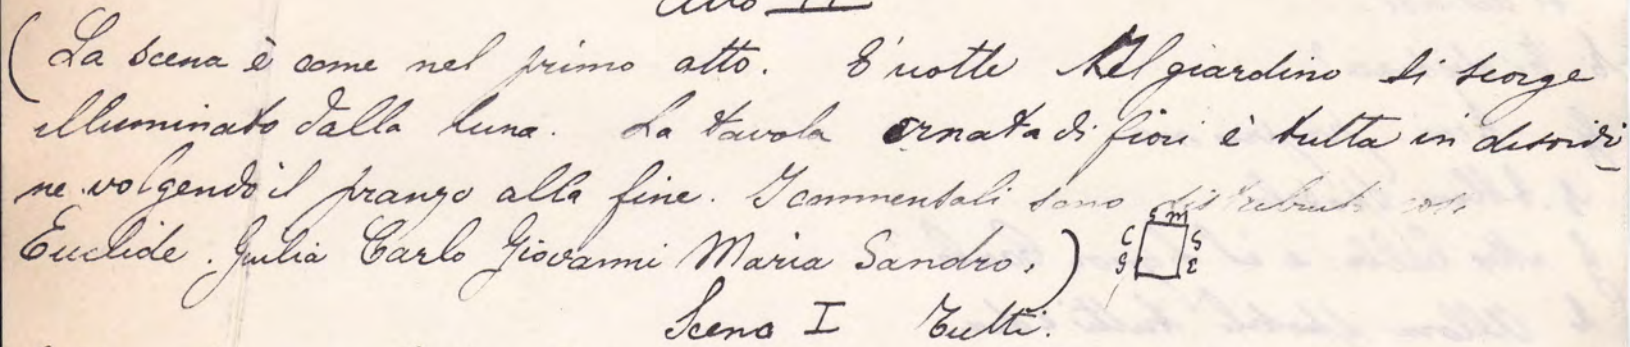 Atto II
(La scena è come nel primo atto. E' notte Nel giardino si scorge
illuminato dalla luna. La tavola ornata di fiori è tutta in disordi
ne volgendo il pranzo alla fine. I commensali sono distribuiti così
Euclide. Giulia Carlo Giovanni Maria Sandro.)
G M
C S
G E
Scena I Tutti.